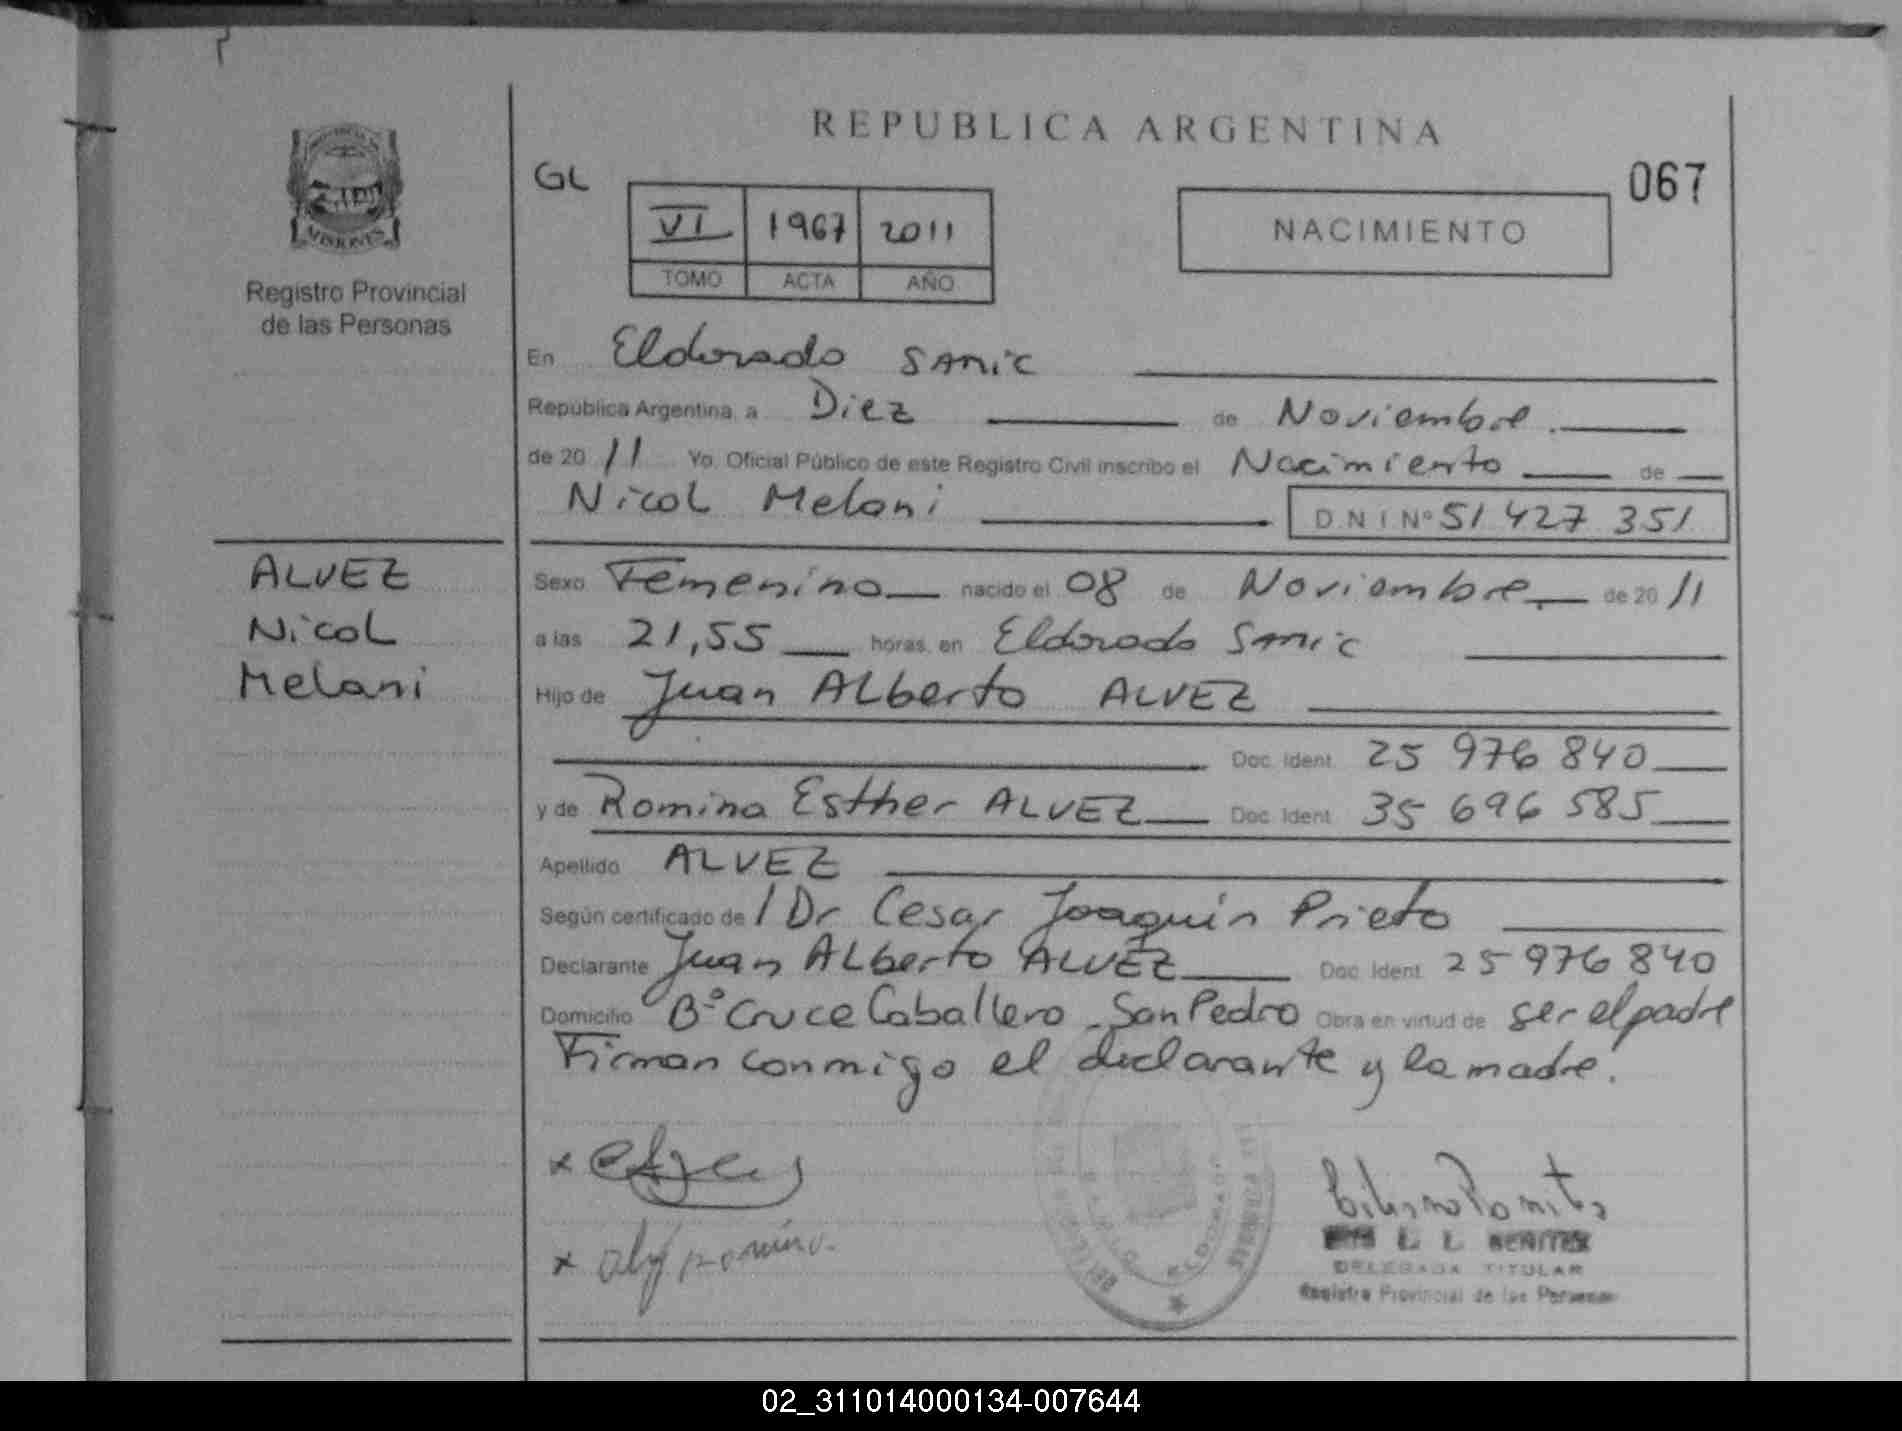 REPUBLICA ARGENTINA
GL
067
VI 1967 2011
TOMO ACTA AÑO
NACIMIENTO
MISIONES
Registro Provincial
de las Personas
En Eldorado SAMIC
República Argentina, a Diez de Noviembre
de 20 11 Yo, Oficial Público de este Registro Civil inscribo el Nacimiento de
Nicol Melani D.N.I Nº 51 427 351
ALVEZ
Nicol
Melani
Sexo Femenino nacido el 08 de Noviembre de 20 11
a las 21,55 horas, en Eldorado Samic
Hijo de Juan Alberto ALVEZ
Doc. Ident. 25 976 840
y de Romina Esther ALVEZ Doc. Ident. 35 696 585
Apellido ALVEZ
Según certificado de / Dr Cesar Joaquin Prieto
Declarante Juan Alberto ALVEZ Doc. Ident. 25 976 840
Domicilio Bº Cruce Caballero - San Pedro Obra en virtud de ser el padre
Firman conmigo el declarante y la madre.
x
x
L. L. BENITEZ
DELEGADA TITULAR
Registro Provincial de las Personas
02_311014000134-007644